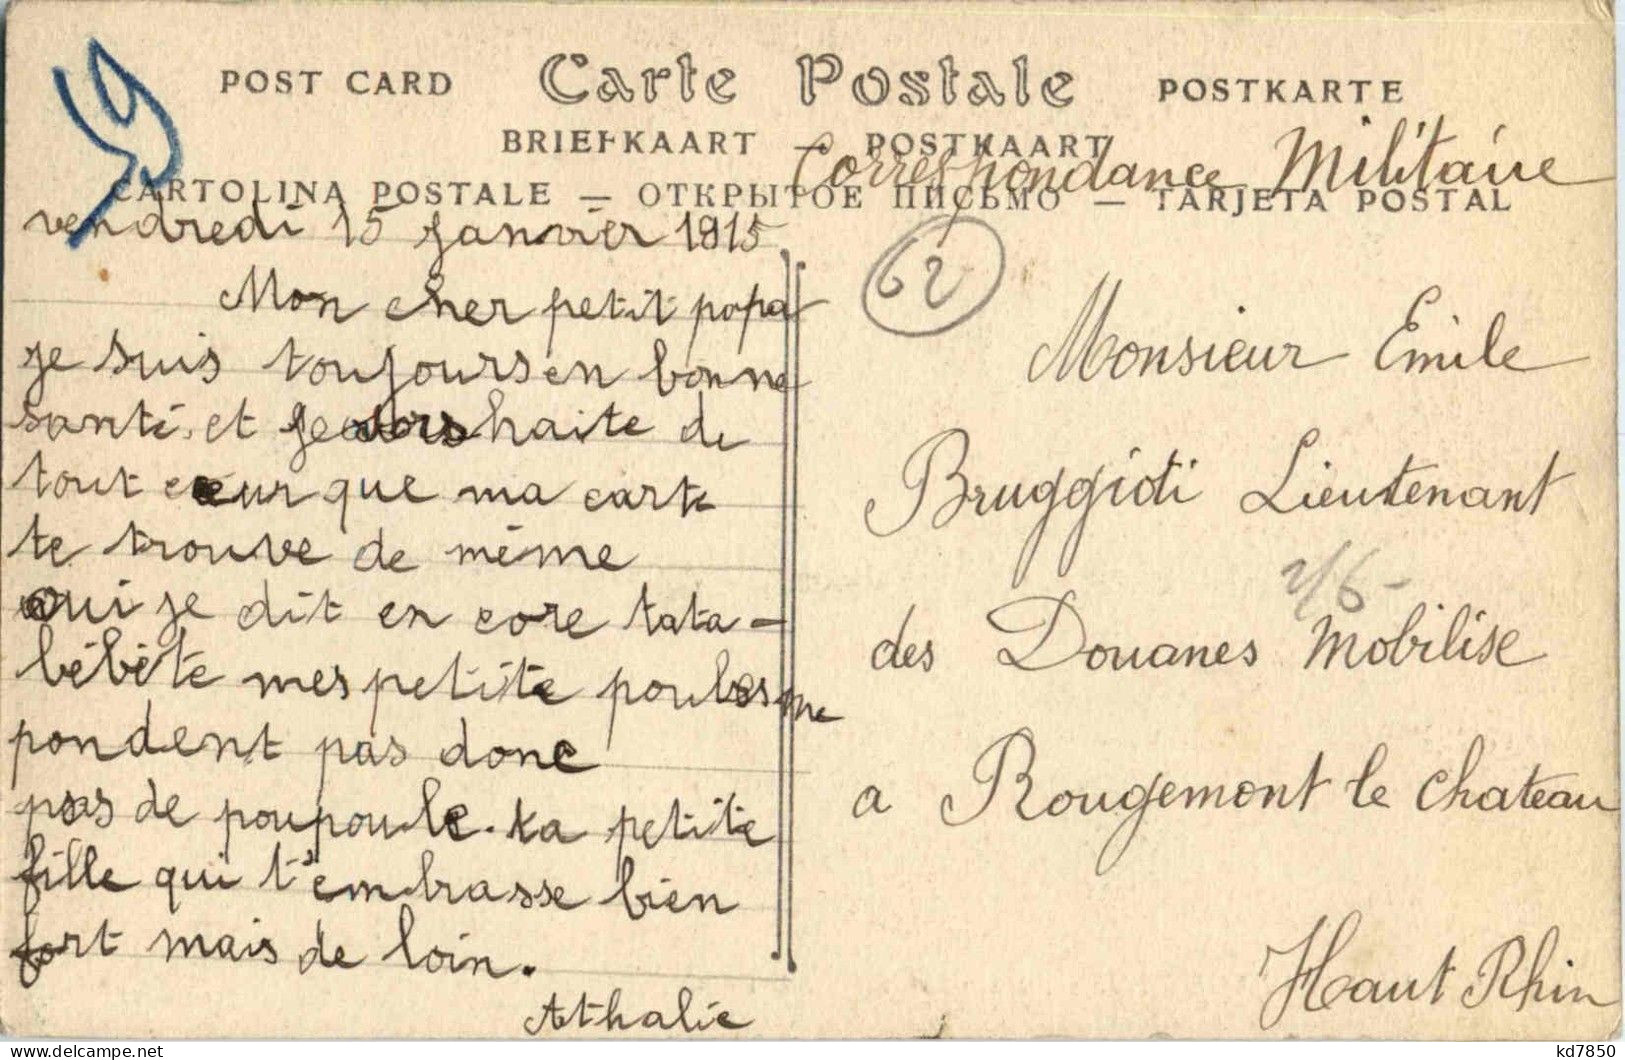 POST CARD Carte Postale POSTKARTE
BRIEFKAART — POSTKAART
CARTOLINA POSTALE — ОТКРЫТОЕ ПИСЬМО — TARJETA POSTAL
Correspondance Militaire
vendredi 15 janvier 1915
Mon cher petit papa
je suis toujours en bonne
santé, et je souhaite de
tout cœur que ma carte
te trouve de même
oui je dit en core tata-
bébête mes petite poules me
pondent pas donc
pas de poupoule. ta petite
fille qui t'embrasse bien
fort mais de loin.
Athalie
62
Monsieur Emile
Bruggioti Lieutenant
des Douanes Mobilise
a Rougemont le Chateau
Haut Rhin
kd7850